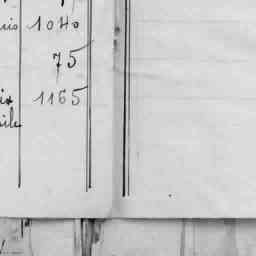 uis 1040
75
ix 1165
ile